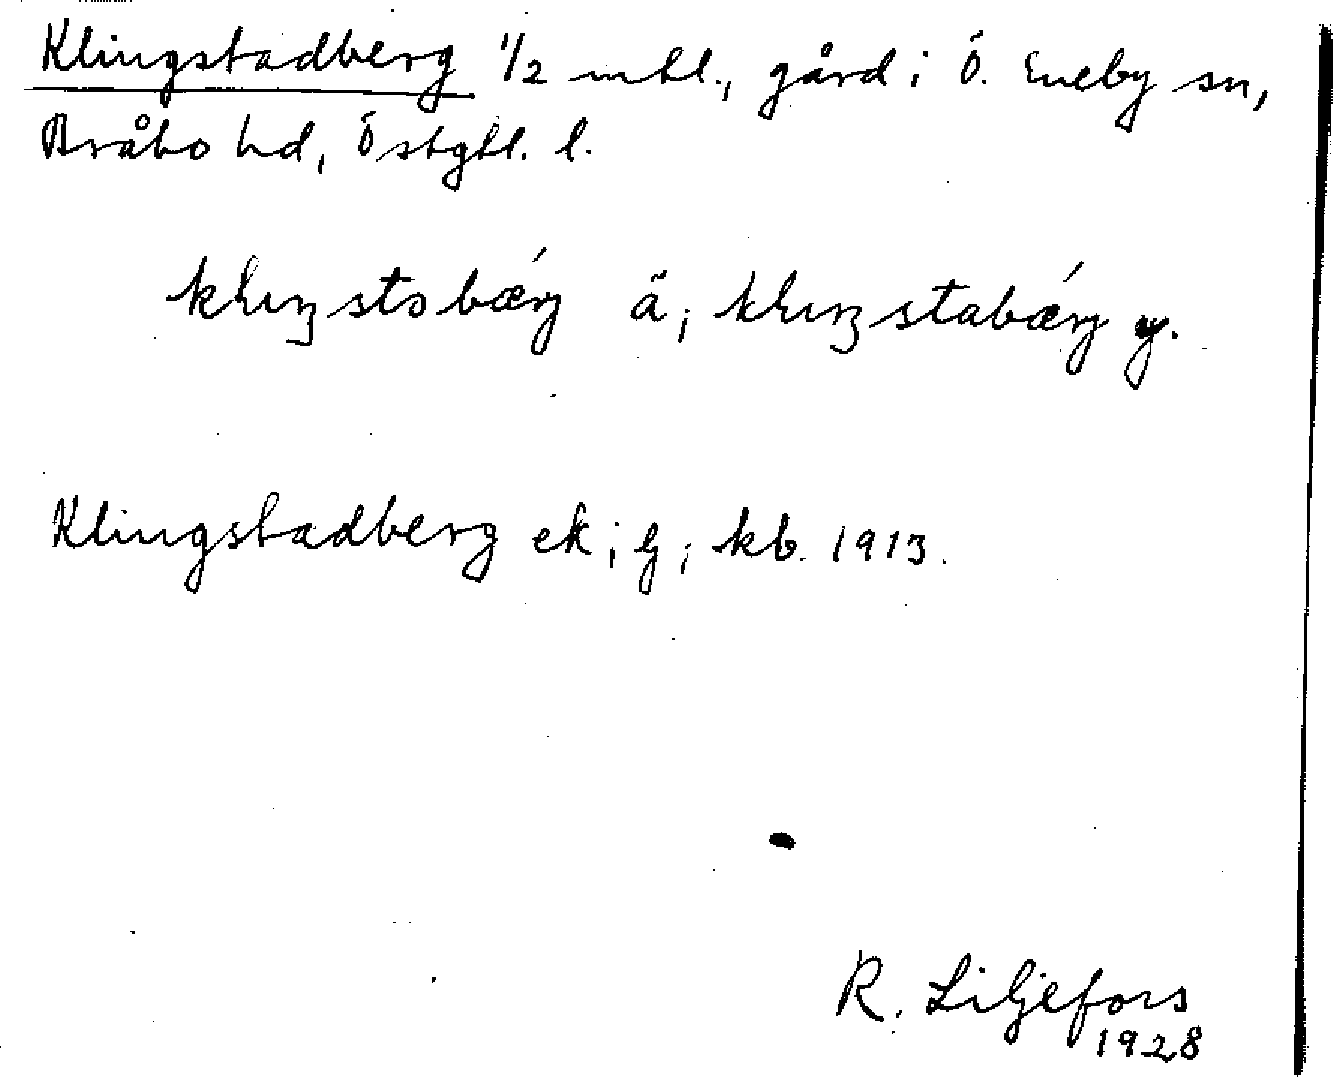 Klingstadberg 1/2 mtl., gård i Ö. Eneby sn,
Bråbo hd, Östgtl. l.
ä,
y.
Klingstadberg ek, kb. 1913.
R. Liljefors
1928